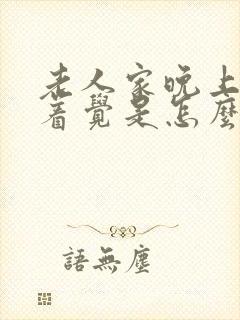 老人家晚上
着覺是怎麼
語無塵